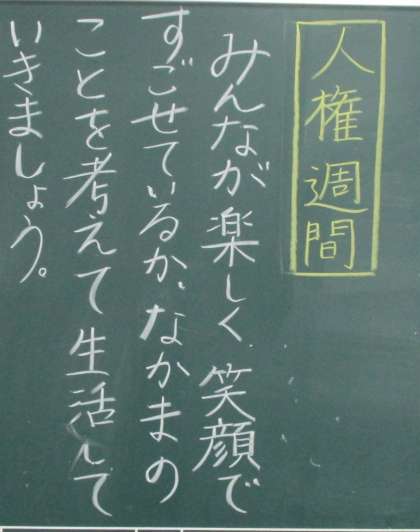 人権週間
みんなが楽しく、笑顔で
すごせているか、なかまの
ことを考えて生活して
いきましょう。